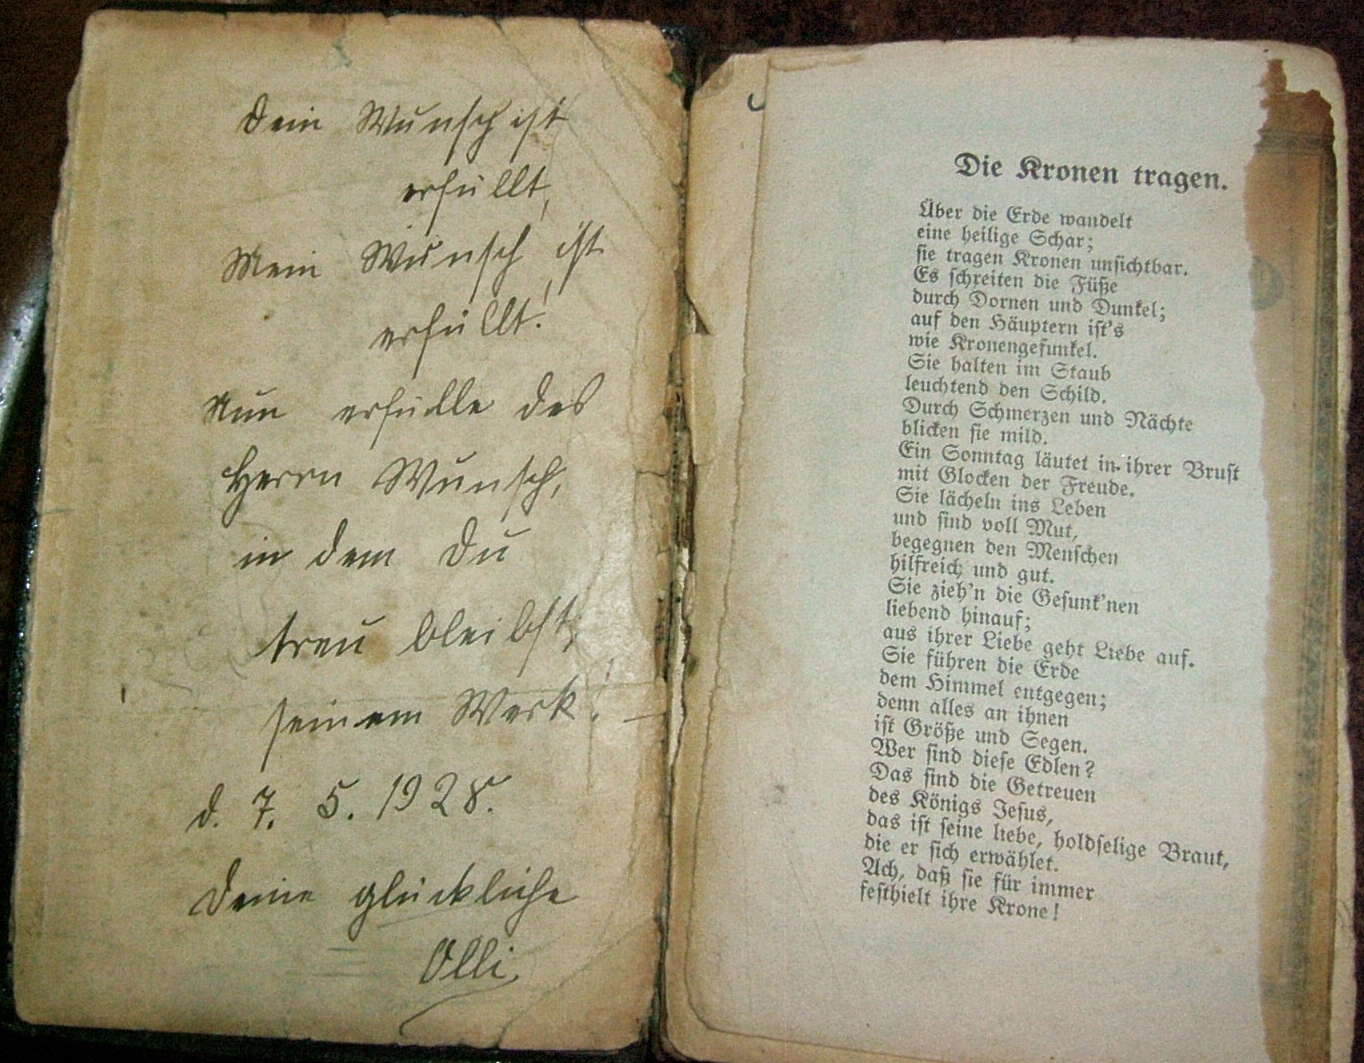 Dein Wunsch ist
erfüllt,
Mein Wunsch ist
erfüllt!
Nun erfülle des
Herrn Wunsch,
in dem Du
treu bleibst,
seinem Werk!
d. 7. 5. 1928.
Deine glückliche
Olli.
Die Kronen tragen.
Über die Erde wandelt
eine heilige Schar;
sie tragen Kronen unsichtbar.
Es schreiten die Füße
durch Dornen und Dunkel;
auf den Häuptern ist's
wie Kronengefunkel.
Sie halten im Staub
leuchtend den Schild.
Durch Schmerzen und Nächte
blicken sie mild.
Ein Sonntag läutet in ihrer Brust
mit Glocken der Freude.
Sie lächeln ins Leben
und sind voll Mut,
begegnen den Menschen
hilfreich und gut.
Sie zieh'n die Gesunk'nen
liebend hinauf;
aus ihrer Liebe geht Liebe auf.
Sie führen die Erde
dem Himmel entgegen;
denn alles an ihnen
ist Größe und Segen.
Wer sind diese Edlen?
Das sind die Getreuen
des Königs Jesus,
das ist seine liebe, holdselige Braut,
die er sich erwählet.
Ach, daß sie für immer
festhielt ihre Krone!